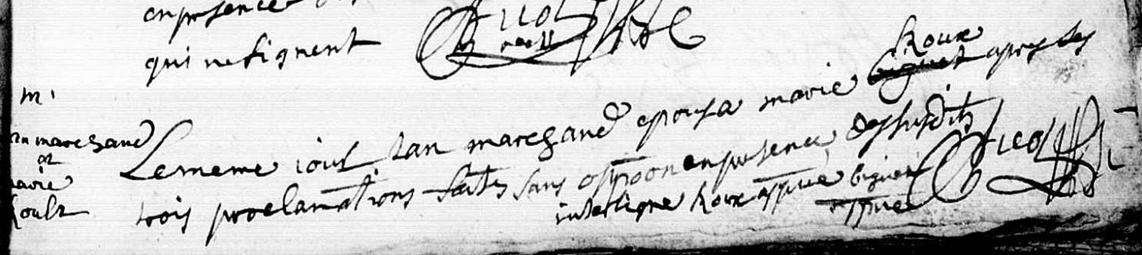 en presence
qui ne signent
m.
an marchand
et
marie
Roulx
Roux
Le meme jour Jan marchand epousa marie biguet apres les
trois proclamations faites sans opposition en presence des susdits
interligne Roux approuvé biguet
approuvé